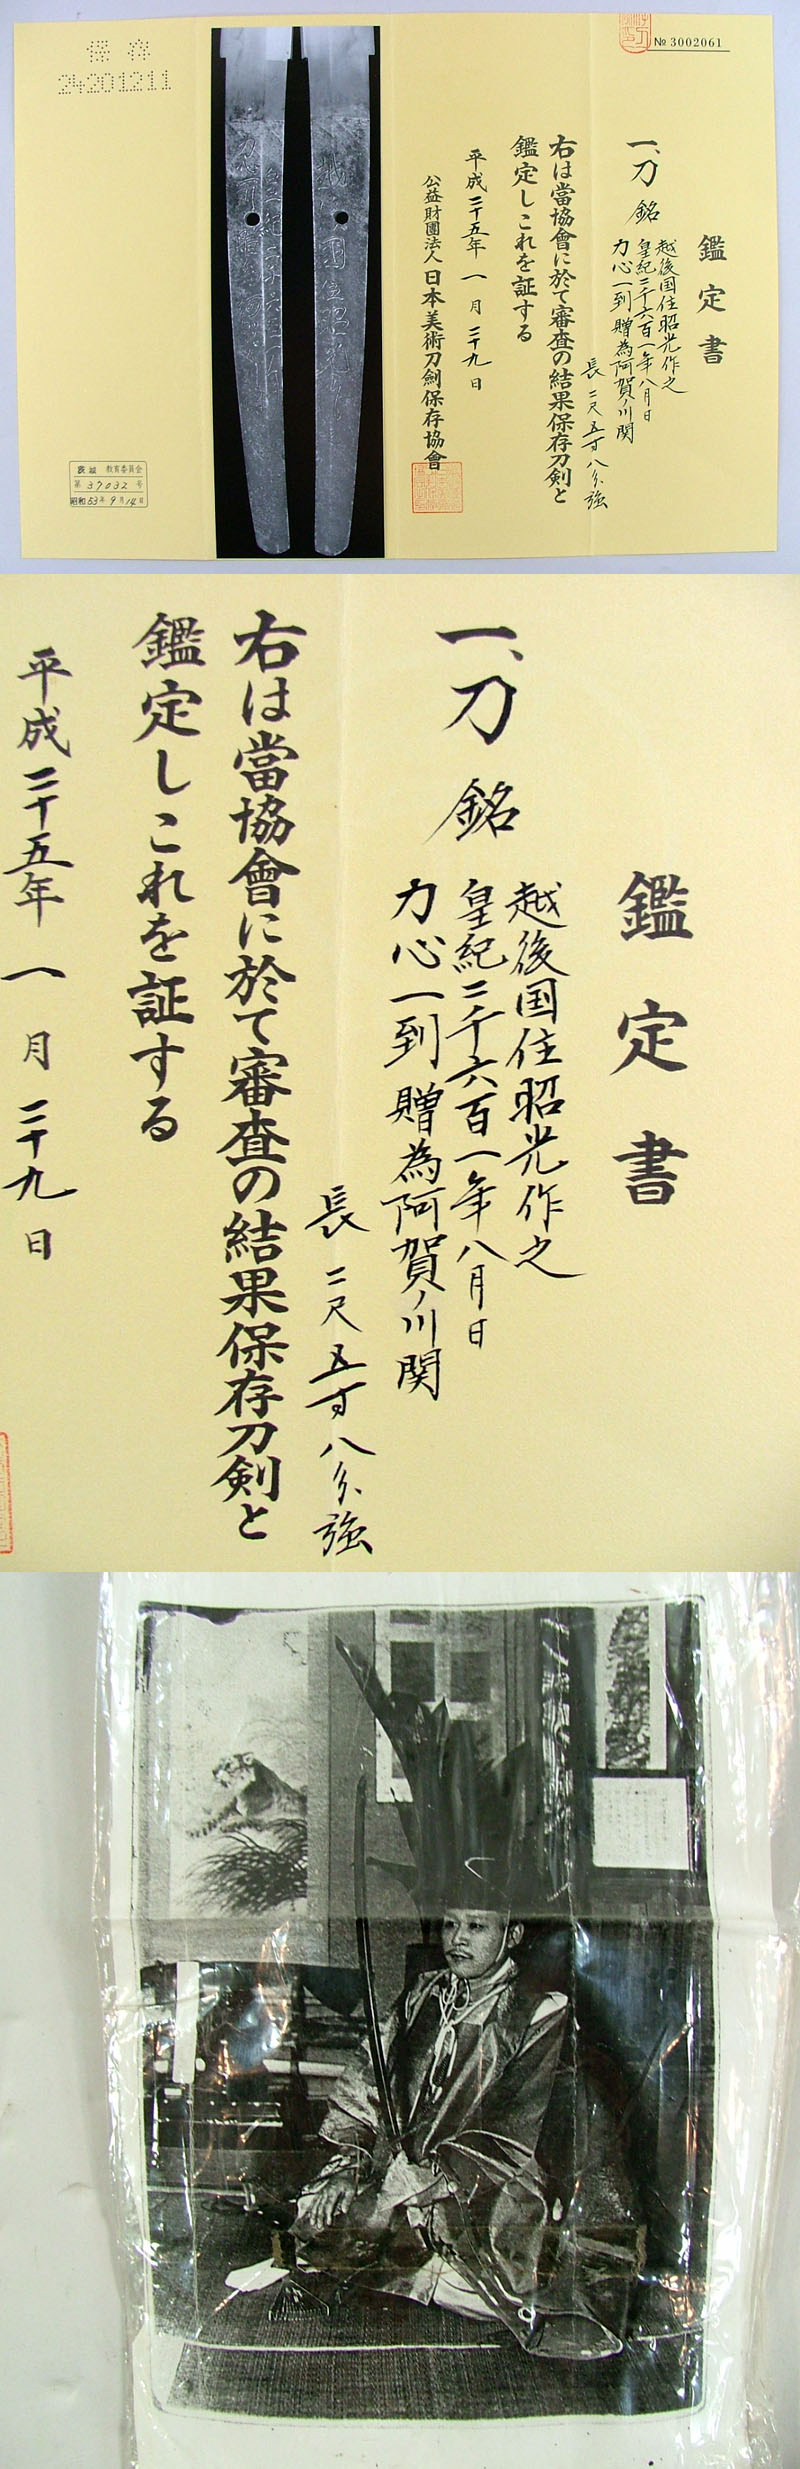 保存
24201211
№ 3002061
鑑定書
一、刀 銘
越後国住昭光作之
皇紀二千六百一年八月日
力心一到 贈為阿賀ノ川関
長二尺五寸八分強
右は當協會に於て審査の結果保存刀剣と
鑑定しこれを証する
平成二十五年一月二十九日
公益財團法人日本美術刀剣保存協會
茨城 教育委員会
第 37032 号
昭和53年9月14日
鑑定書
一、刀 銘
越後国住昭光作之
皇紀二千六百一年八月日
力心一到 贈為阿賀ノ川関
長二尺五寸八分強
右は當協會に於て審査の結果保存刀剣と
鑑定しこれを証する
平成二十五年一月二十九日